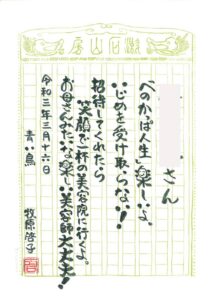 漱石山房
さん
「へのかっぱ人生」楽しいよ、
いじめを受け取らない!
招待してくれたら
笑顔で一杯の美容院に行くよ。
お母さんみたいな楽しい美容師大丈夫!
令和三年三月十六日
青い鳥
牧原啓子